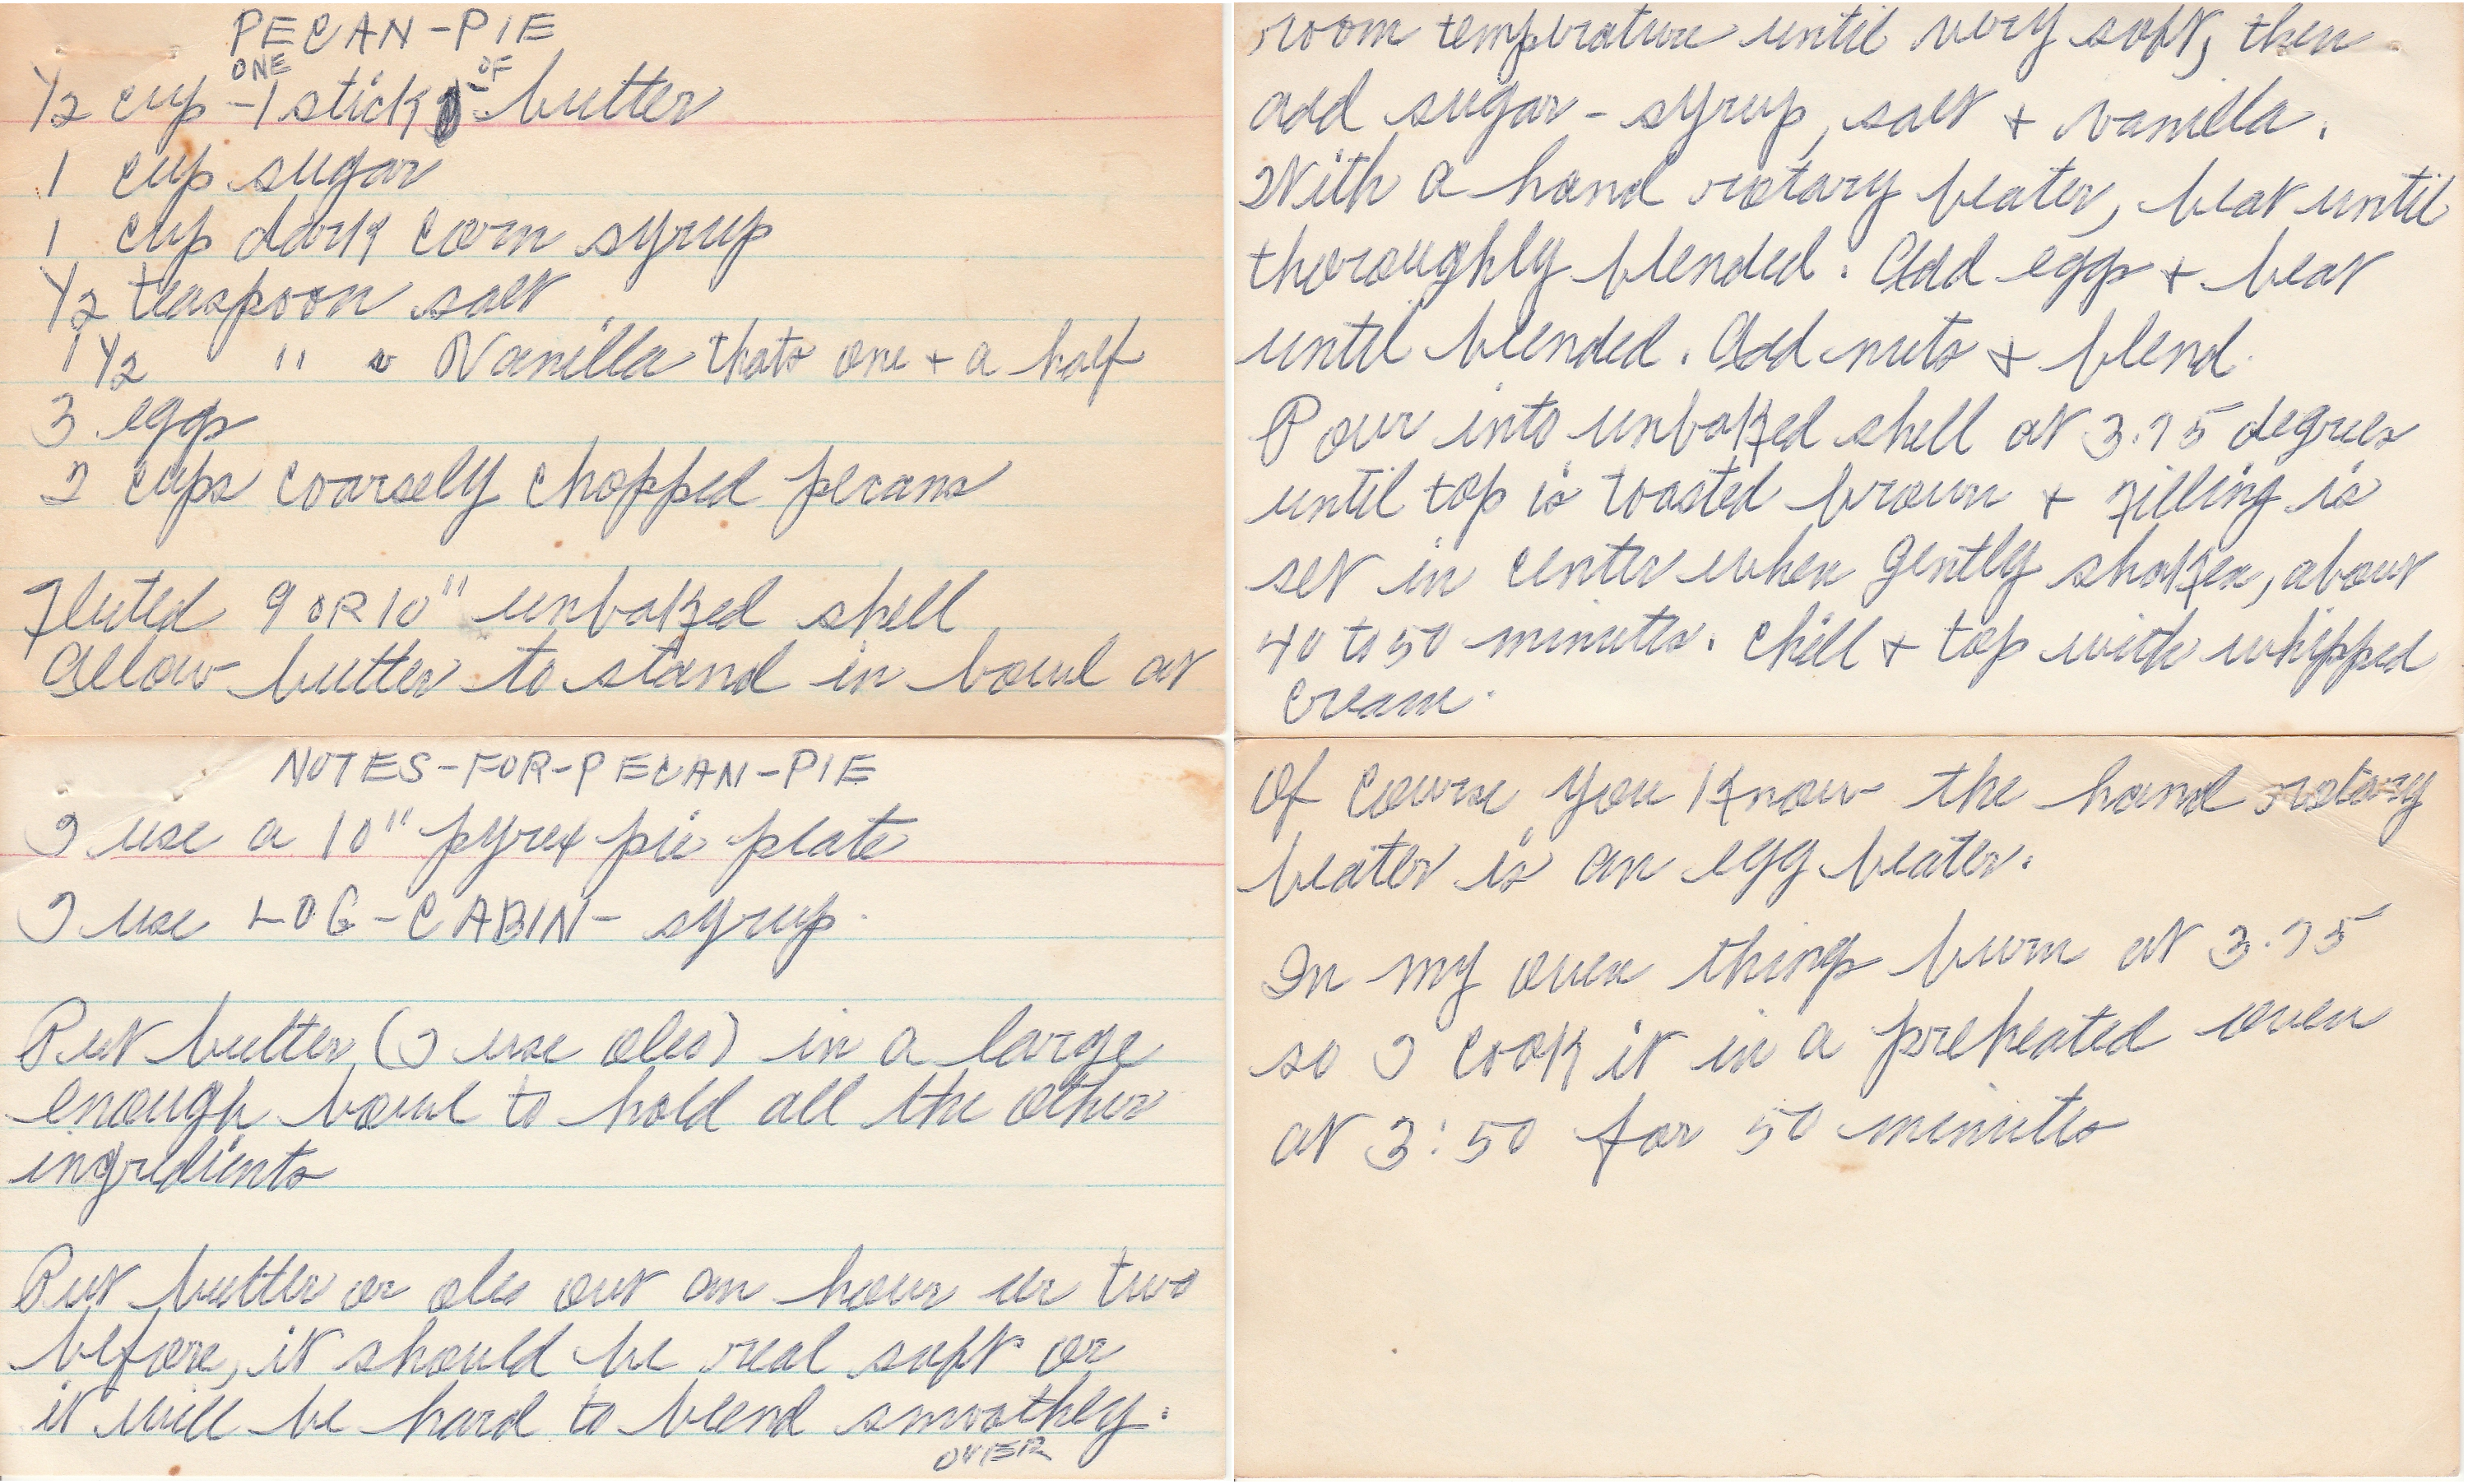 PECAN-PIE
ONE OF
1/2 cup - 1 stick butter
1 cup sugar
1 cup dark corn syrup
1/2 teaspoon salt
1 1/2 " " Vanilla thats one + a half
3 eggs
2 cups coarsely chopped pecans
Fluted 9 OR 10" unbaked shell
Allow butter to stand in bowl at
room temperature until very soft, then
add sugar - syrup, salt + vanilla.
With a hand rotary beater, beat until
thoroughly blended. Add eggs + beat
until blended. Add nuts + blend.
Pour into unbaked shell at 3.75 degrees
until top is toasted brown + filling is
set in center when gently shaken, about
40 to 50 minutes. Chill + top with whipped
cream.
NOTES-FOR-PECAN-PIE
I use a 10" pyrex pie plate
I use LOG-CABIN- syrup.
Put butter (I use oleo) in a large
enough bowl to hold all the other
ingredients
Put butter or oleo out an hour or two
before, it should be real soft or
it will be hard to blend smoothly.
OVER
Of course you know the hand rotary
beater is an egg beater.
In my oven things burn at 3.75
so I cook it in a preheated oven
at 3:50 for 50 minutes